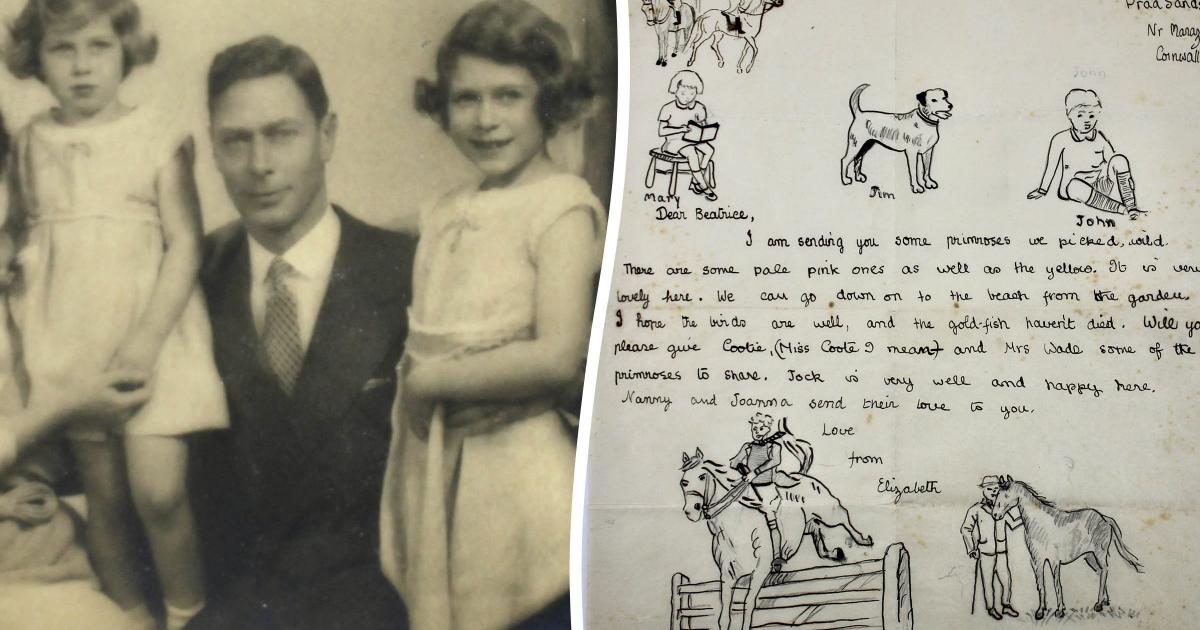 Praa Sands
Nr Maraz
Cornwall
John
Mary
Jim
John
Dear Beatrice,
I am sending you some primroses we picked, wild.
There are some pale pink ones as well as the yellow. It is very
lovely here. We can go down on to the beach from the garden.
I hope the birds are well, and the gold-fish haven't died. Will yo
please give Cootie, (Miss Coote I mean) and Mrs Wade some of the
primroses to share. Jock is very well and happy here.
Nanny and Joanna send their love to you.
Love
from
Elizabeth